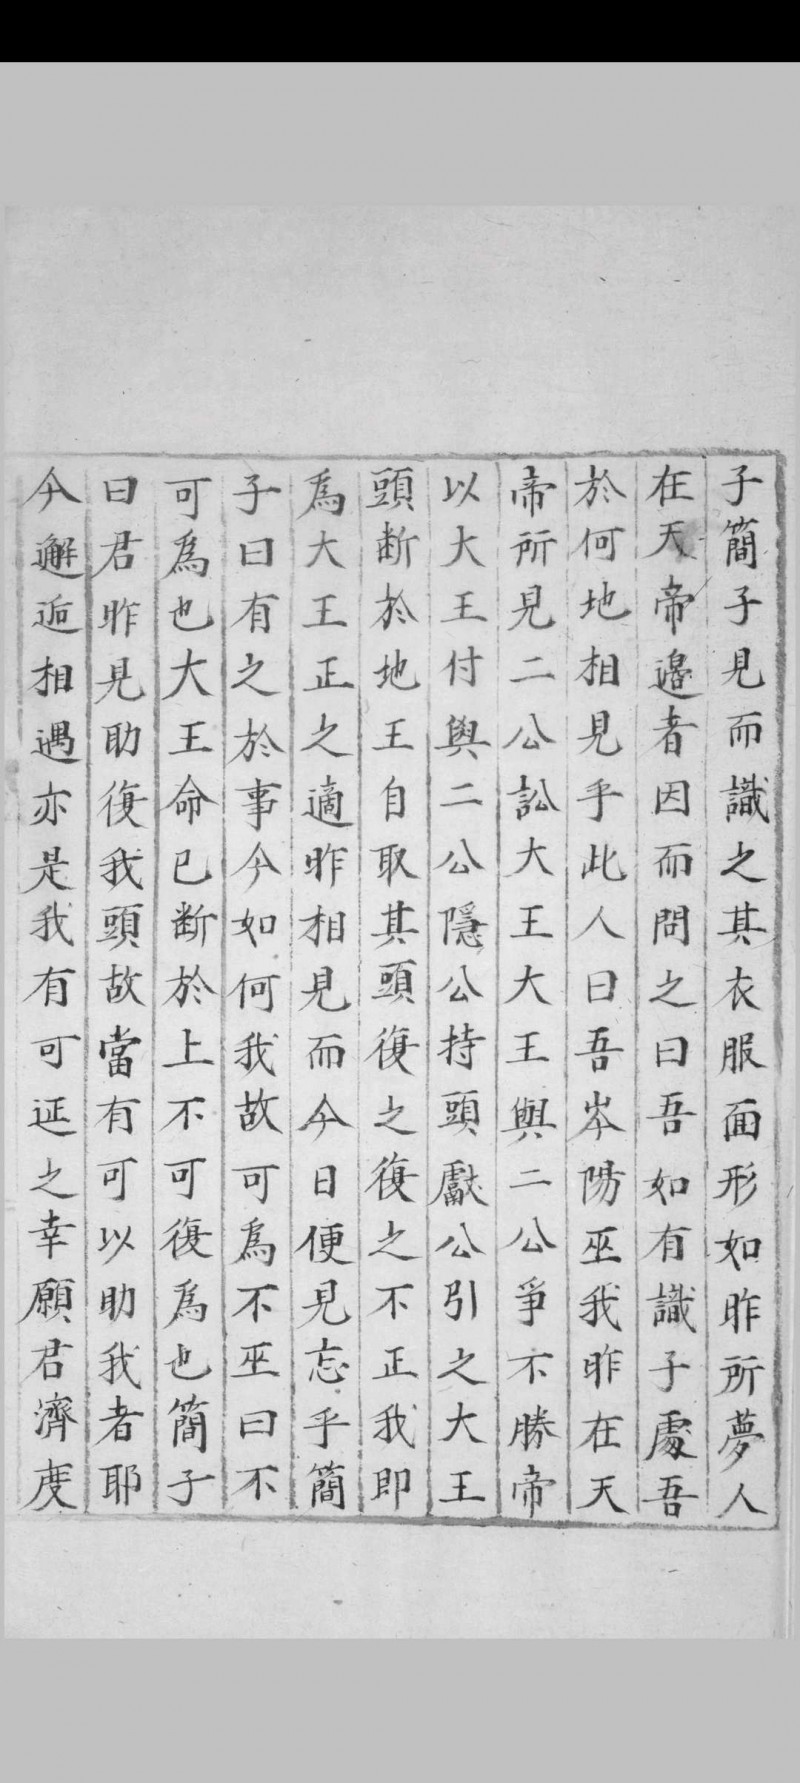 子簡子見而識之其衣服面形如昨所夢人
在天帝邊者因而問之曰吾如有識子處吾
於何地相見乎此人曰吾岑陽巫我昨在天
帝所見二公訟大王大王與二公爭不勝帝
以大王付與二公隱公持頭獻公引之大王
頭斷於地王自取其頭復之復之不正我即
為大王正之適昨相見而今日便見忘乎簡
子曰有之於事今如何我故可為不巫曰不
可為也大王命已斷於上不可復為也簡子
曰君昨見助復我頭故當有可以助我者耶
今邂逅相遇亦是我有可延之幸願君濟度